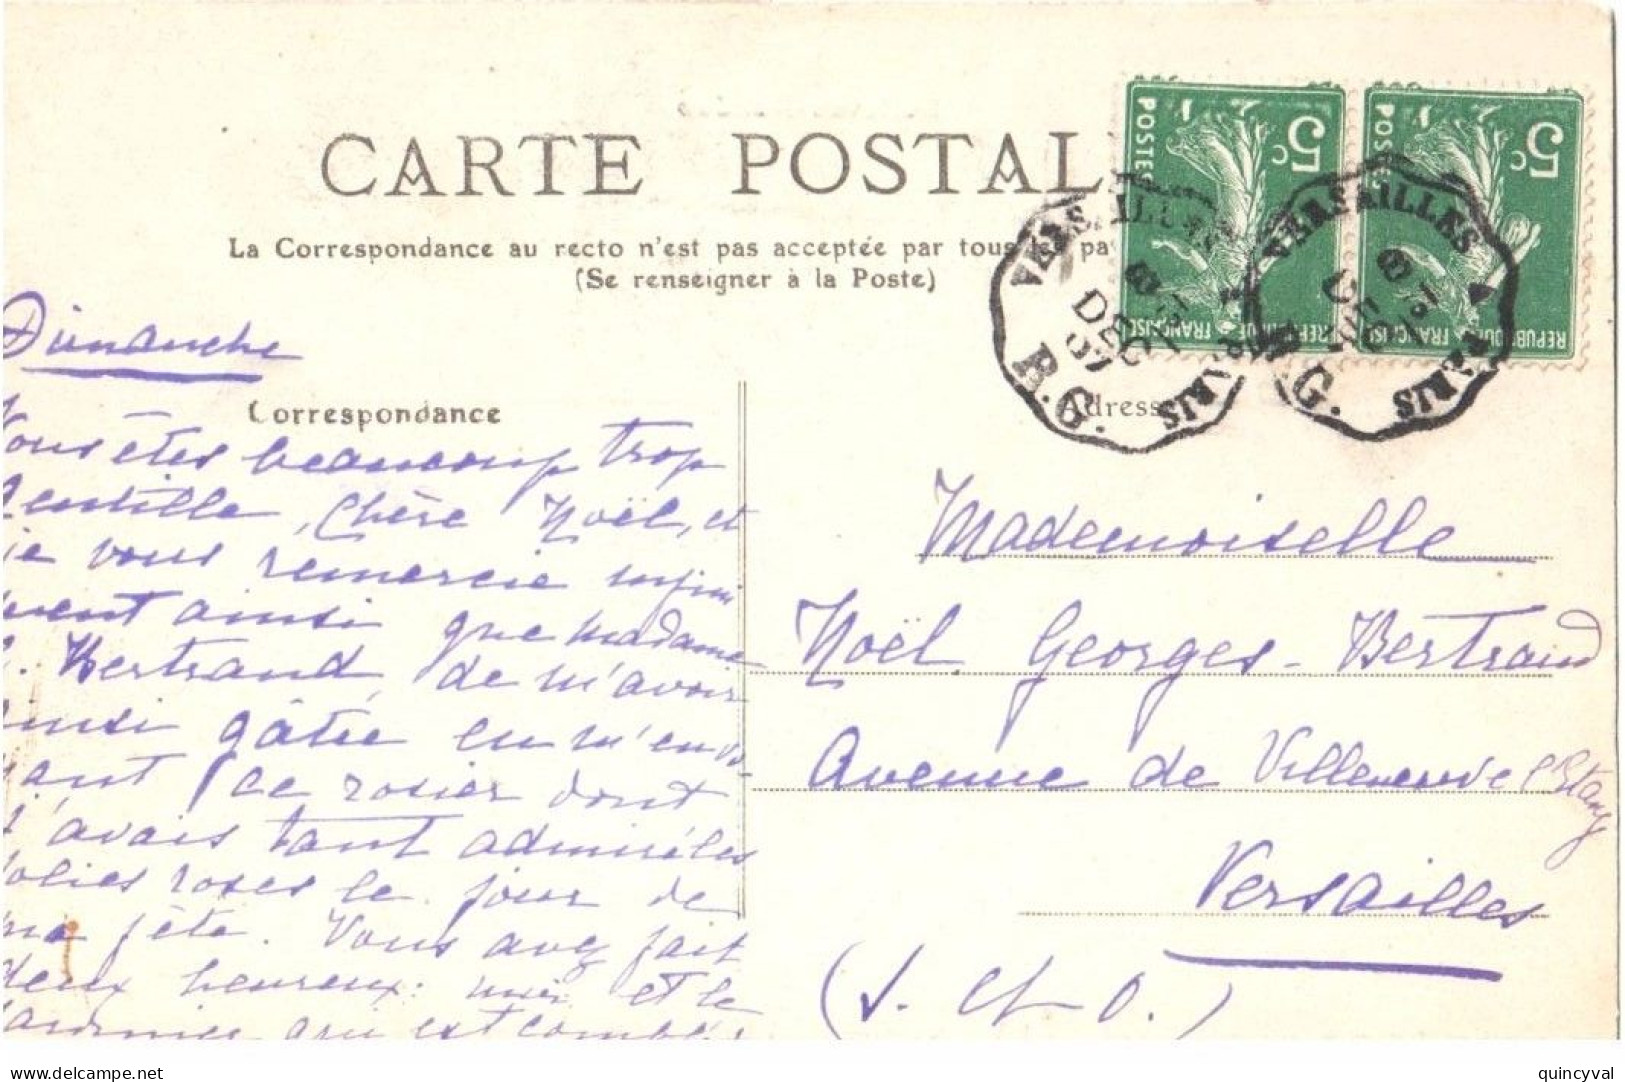 CARTE POSTAL
La Correspondance au recto n'est pas acceptée par tous les pa
(Se renseigner à la Poste)
5c
POSTES
REPUBLIQUE FRANÇAISE
5c
POSTES
REPUBLIQUE FRANÇAISE
VERSAILLES
PARIS
8
DEC
07
R.G.
VERSAILLES
PARIS
8
R.G.
Dimanche
Correspondance
Adresse
Vous êtes beaucoup trop
gentille, chère Noël, et
je vous remercie infini
ment ainsi que madame
Bertrand, de m'avoir
ainsi gâtée en m'envo-
yant ce rosier dont
j'avais tant admiré les
jolies roses le jour de
ma fête. Vous avez fait
deux heureux: moi et le
qui est
Mademoiselle
Noël Georges-Bertrand
Avenue de Villeneuve l'Etang
Versailles
(S. et O.)
quincyval